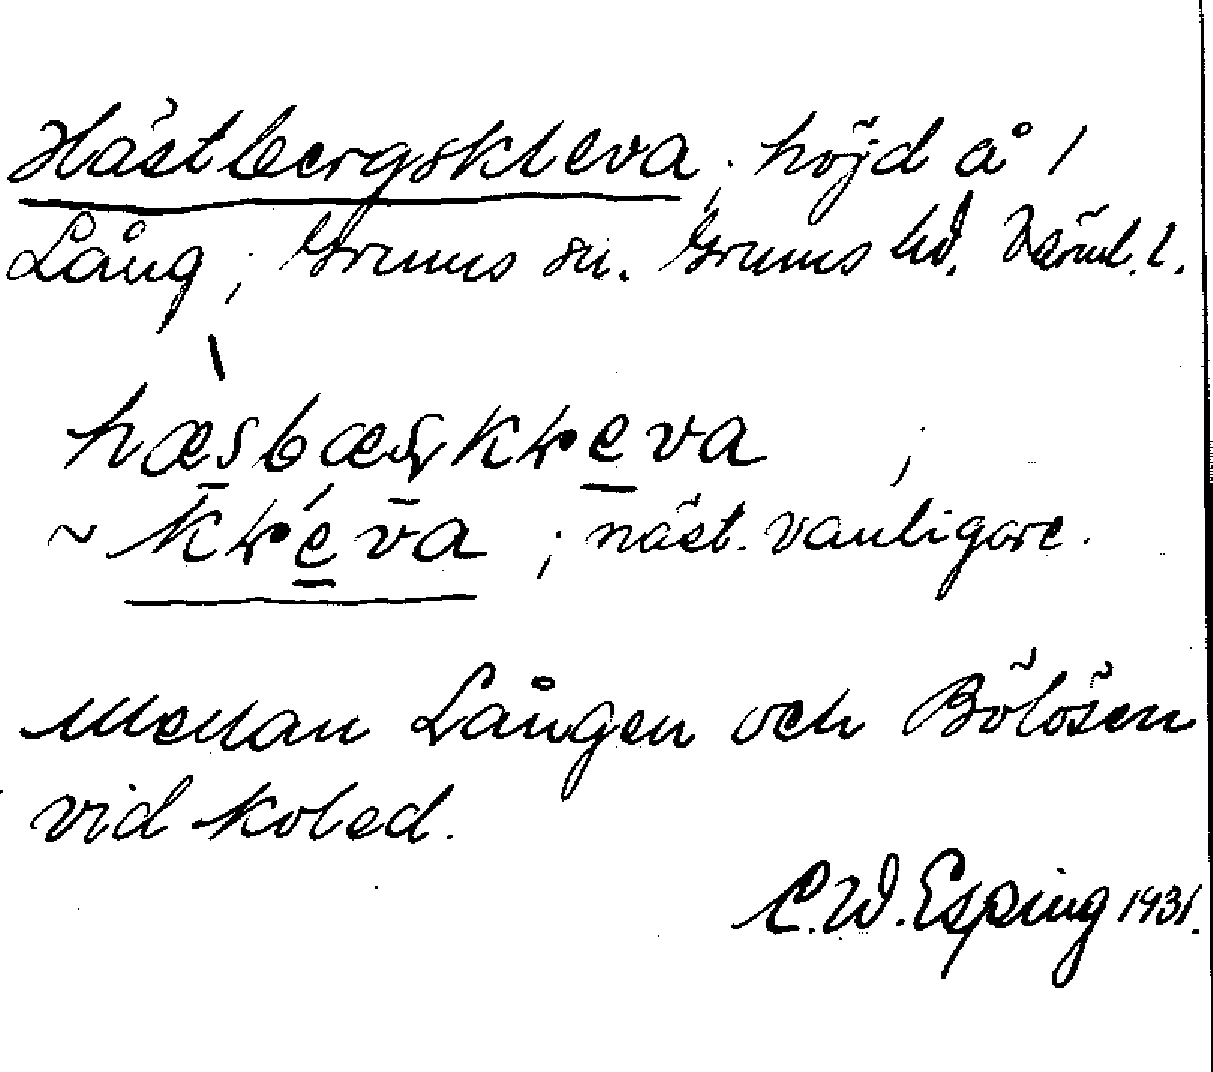 Hästbergskleva; höjd å 1
Lång; Grums sn. Grums hd. Värml. l.
~
; näst. vanligare.
Mellan Lången och Bölösen
vid Koled.
C. W. Esping 1931.